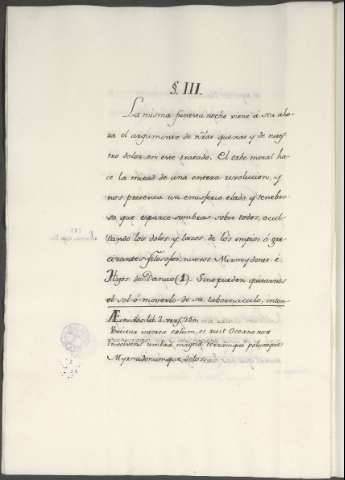 §. III.
La misma funesta noche viene à ser aho-
ra el argumento de nras quexas y de nues-
tro dolor en este tratado. El orbe moral ha-
ce la mitad de una entera revolucion, y
nos presenta un emisferio elado y tenebro-
so que esparce sombras sobre todos, ocul-
tando los dolos y de los impios ó
filosofos nuevos Myrmydones è
Hijos de Danao (1). Sino pueden quitarnos
el sol ò moverlo de su tabernaculo, inten-
Æneidos lib. 2. vers. 250.
Vertitur interea cœlum, et ruit Oceano nox
Involvens umbra magna terramque polumque
Myrmidonumque dolos.